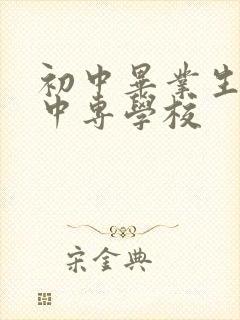 初中畢業生
中专學校
宋金典